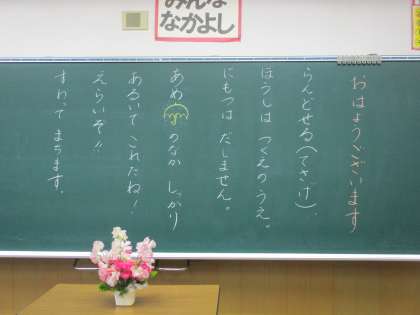 みんな
なかよし
おはようございます
らんどせる(てさげ)、
ぼうしは つくえのうえ。
にもつは だしません。
あめ のなか しっかり
あるいて これたね!
えらいぞ!!
すわって まちます。